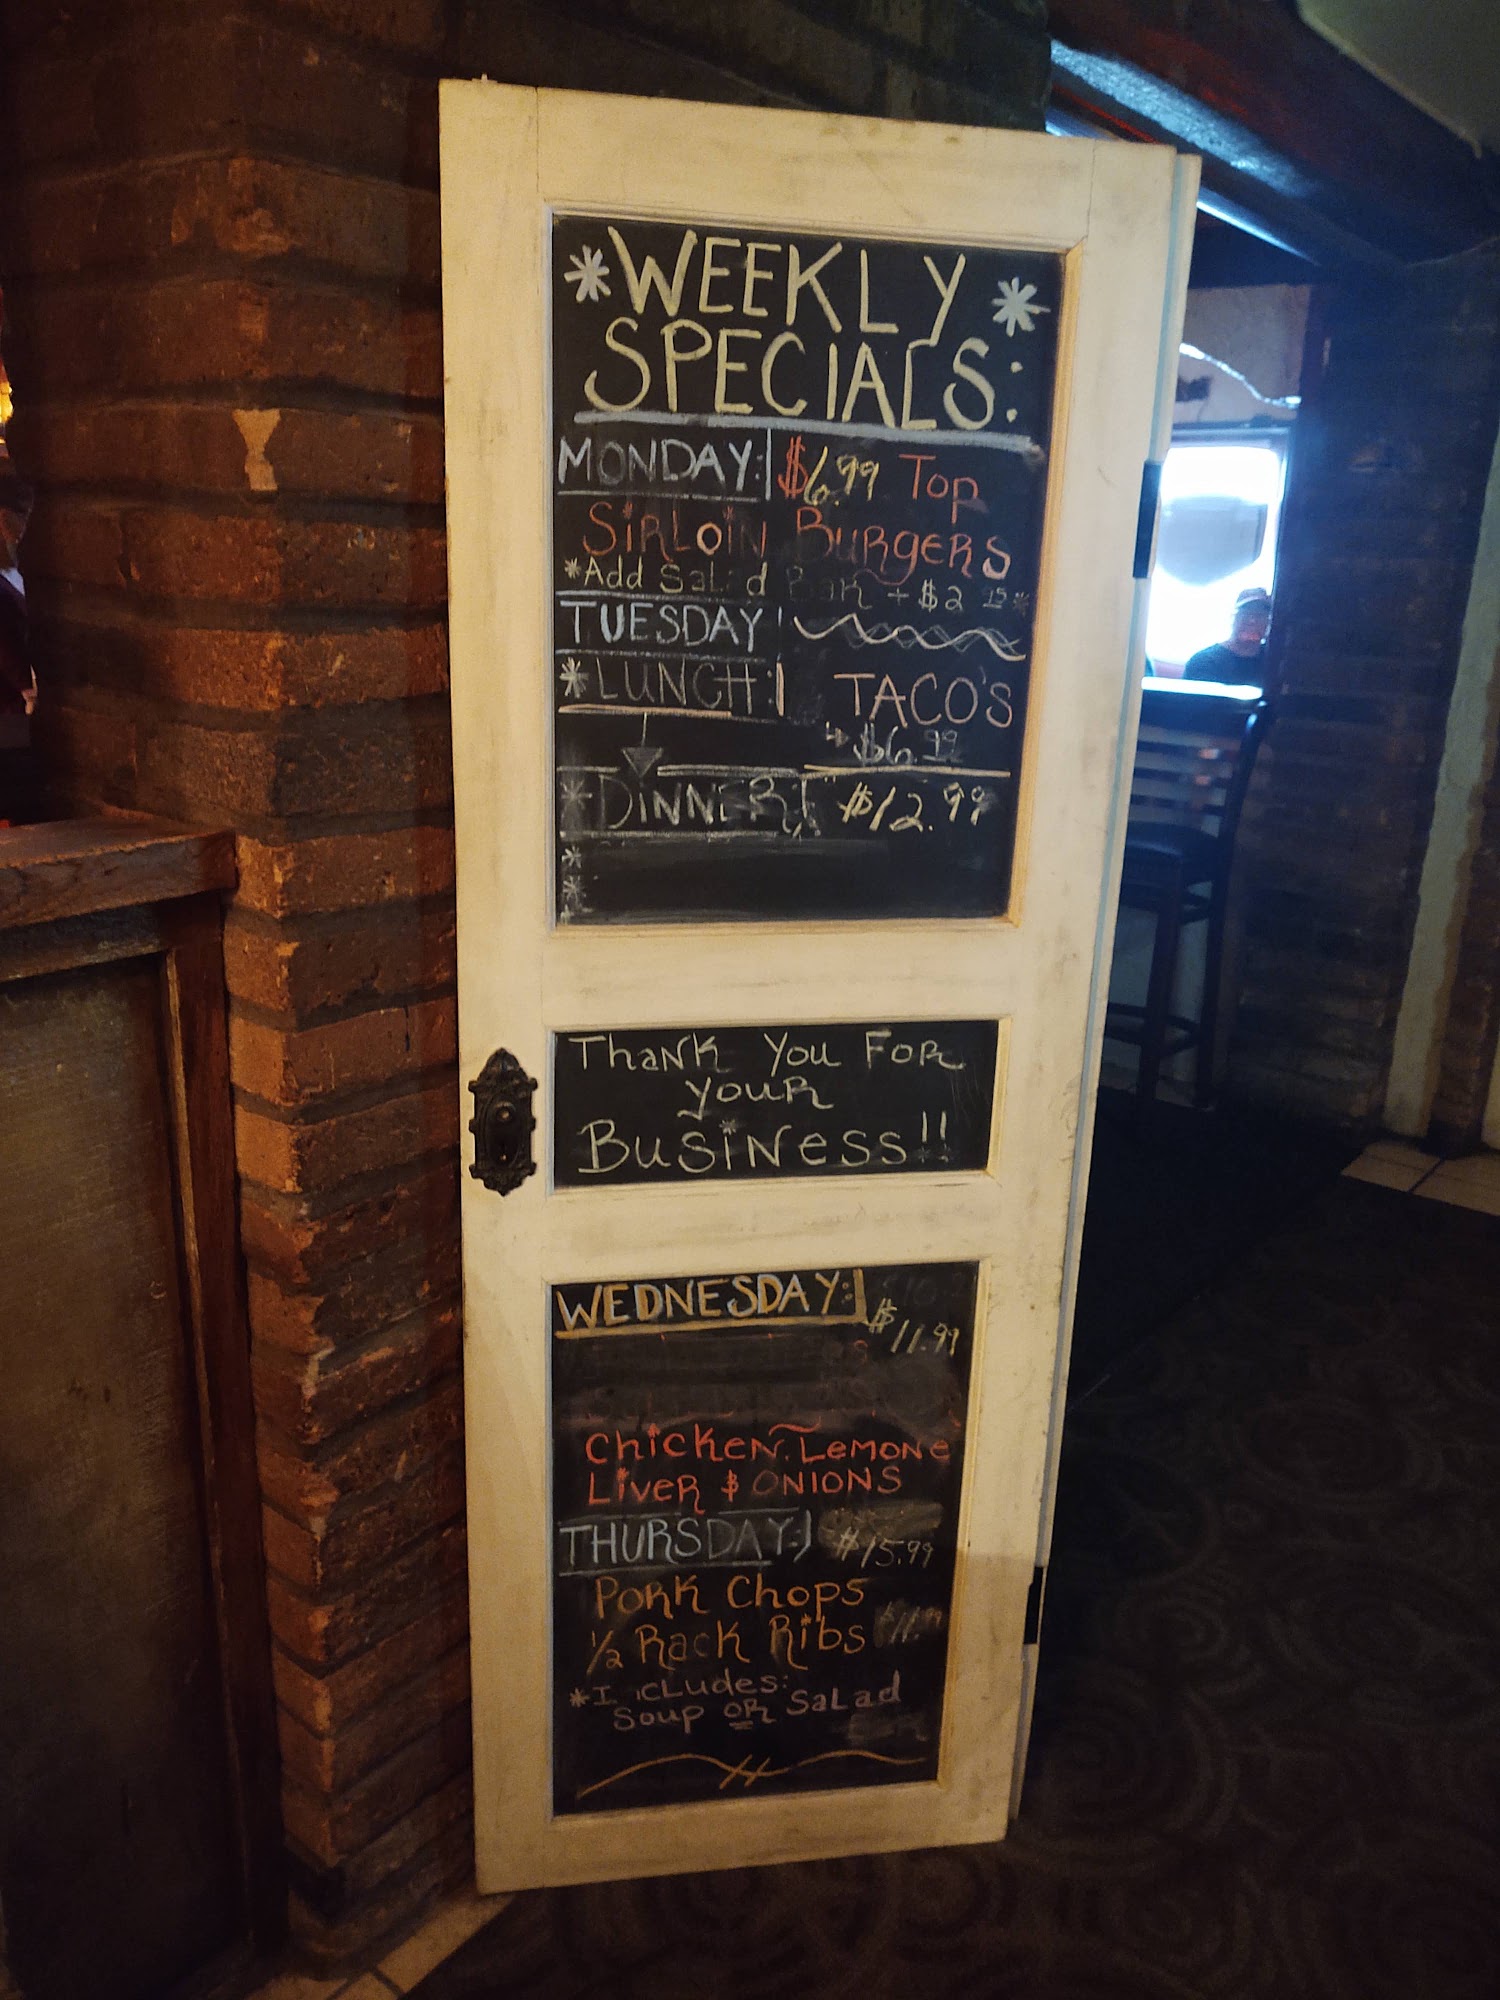 *WEEKLY*
SPECIALS:
MONDAY: $6.99 TOP
SIRLOIN BURGERS
*Add Salad Bar + $2
TUESDAY
*LUNCH: TACO'S
$6.99
*DINNER: $12.99
Thank You For
your
Business!!
WEDNESDAY: $11.99
Chicken Lemone
Liver $ ONIONS
THURSDAY: $15.99
Pork Chops
1/2 Rack Ribs $11.99
*Includes:
Soup OR Salad